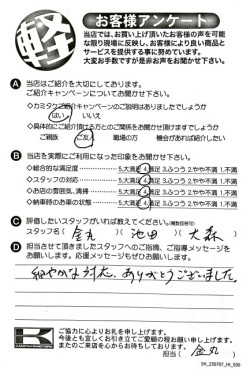 軽
お客様アンケート
当店では、お買い上げ頂いたお客様の声を可能
な限り現場に反映し、お客様により良い商品と
サービスを提供する事に努めています。
大変お手数ですが是非お声をお聞かせ下さい。
A 当店はご紹介を大切にしております。
ご紹介キャンペーンについてお聞かせ下さい。
◇カミタケご紹介キャンペーンのご説明はありましたでしょうか
はい ・ いいえ
◇具体的にご紹介頂ける方とのご関係をお聞かせ頂けますでしょうか
ご親族 ご友人 職場の方 機会があれば紹介したい
B 当店を実際にご利用になった印象をお聞かせ下さい。
◇総合的な満足度……5.大満足 4.満足 3.ふつう 2.やや不満 1.不満
◇スタッフの対応……5.大満足 4.満足 3.ふつう 2.やや不満 1.不満
◇お店の雰囲気、清掃……5.大満足 4.満足 3.ふつう 2.やや不満 1.不満
◇納車時のお車の状態……5.大満足 4.満足 3.ふつう 2.やや不満 1.不満
C 評価したいスタッフがいれば教えてください。(複数回答可)
スタッフ名( 金丸 )( 池田 )( 大森 )
D 担当させて頂きましたスタッフへのご指摘、ご指導メッセージを
お願いします。応援メッセージもぜひお願いします。
細やかな対応、ありがとうございました。
ご協力に心よりお礼を申し上げます。
今後とも宜しくお引き立てご愛顧の程お願い申し上げます。
またのご来店を心からお待ちしております。
担当( 金丸 )
SH_230707_HI_500